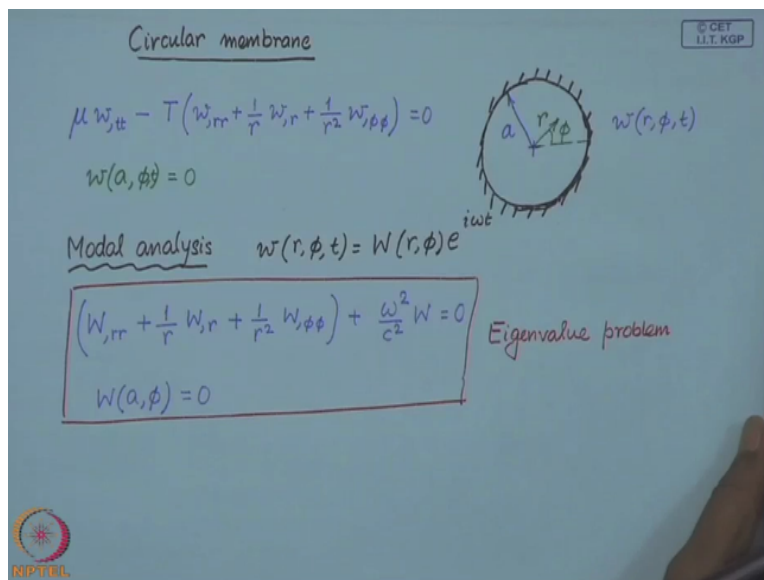 Circular membrane
© CET
I.I.T. KGP
μ w,tt − T(w,rr + 1/r w,r + 1/r² w,φφ) = 0
w(a, φ, t) = 0
a
r
φ
w(r, φ, t)
Modal analysis w(r, φ, t) = W(r, φ) e^iωt
(W,rr + 1/r W,r + 1/r² W,φφ) + ω²/c² W = 0
W(a, φ) = 0
Eigenvalue problem
NPTEL